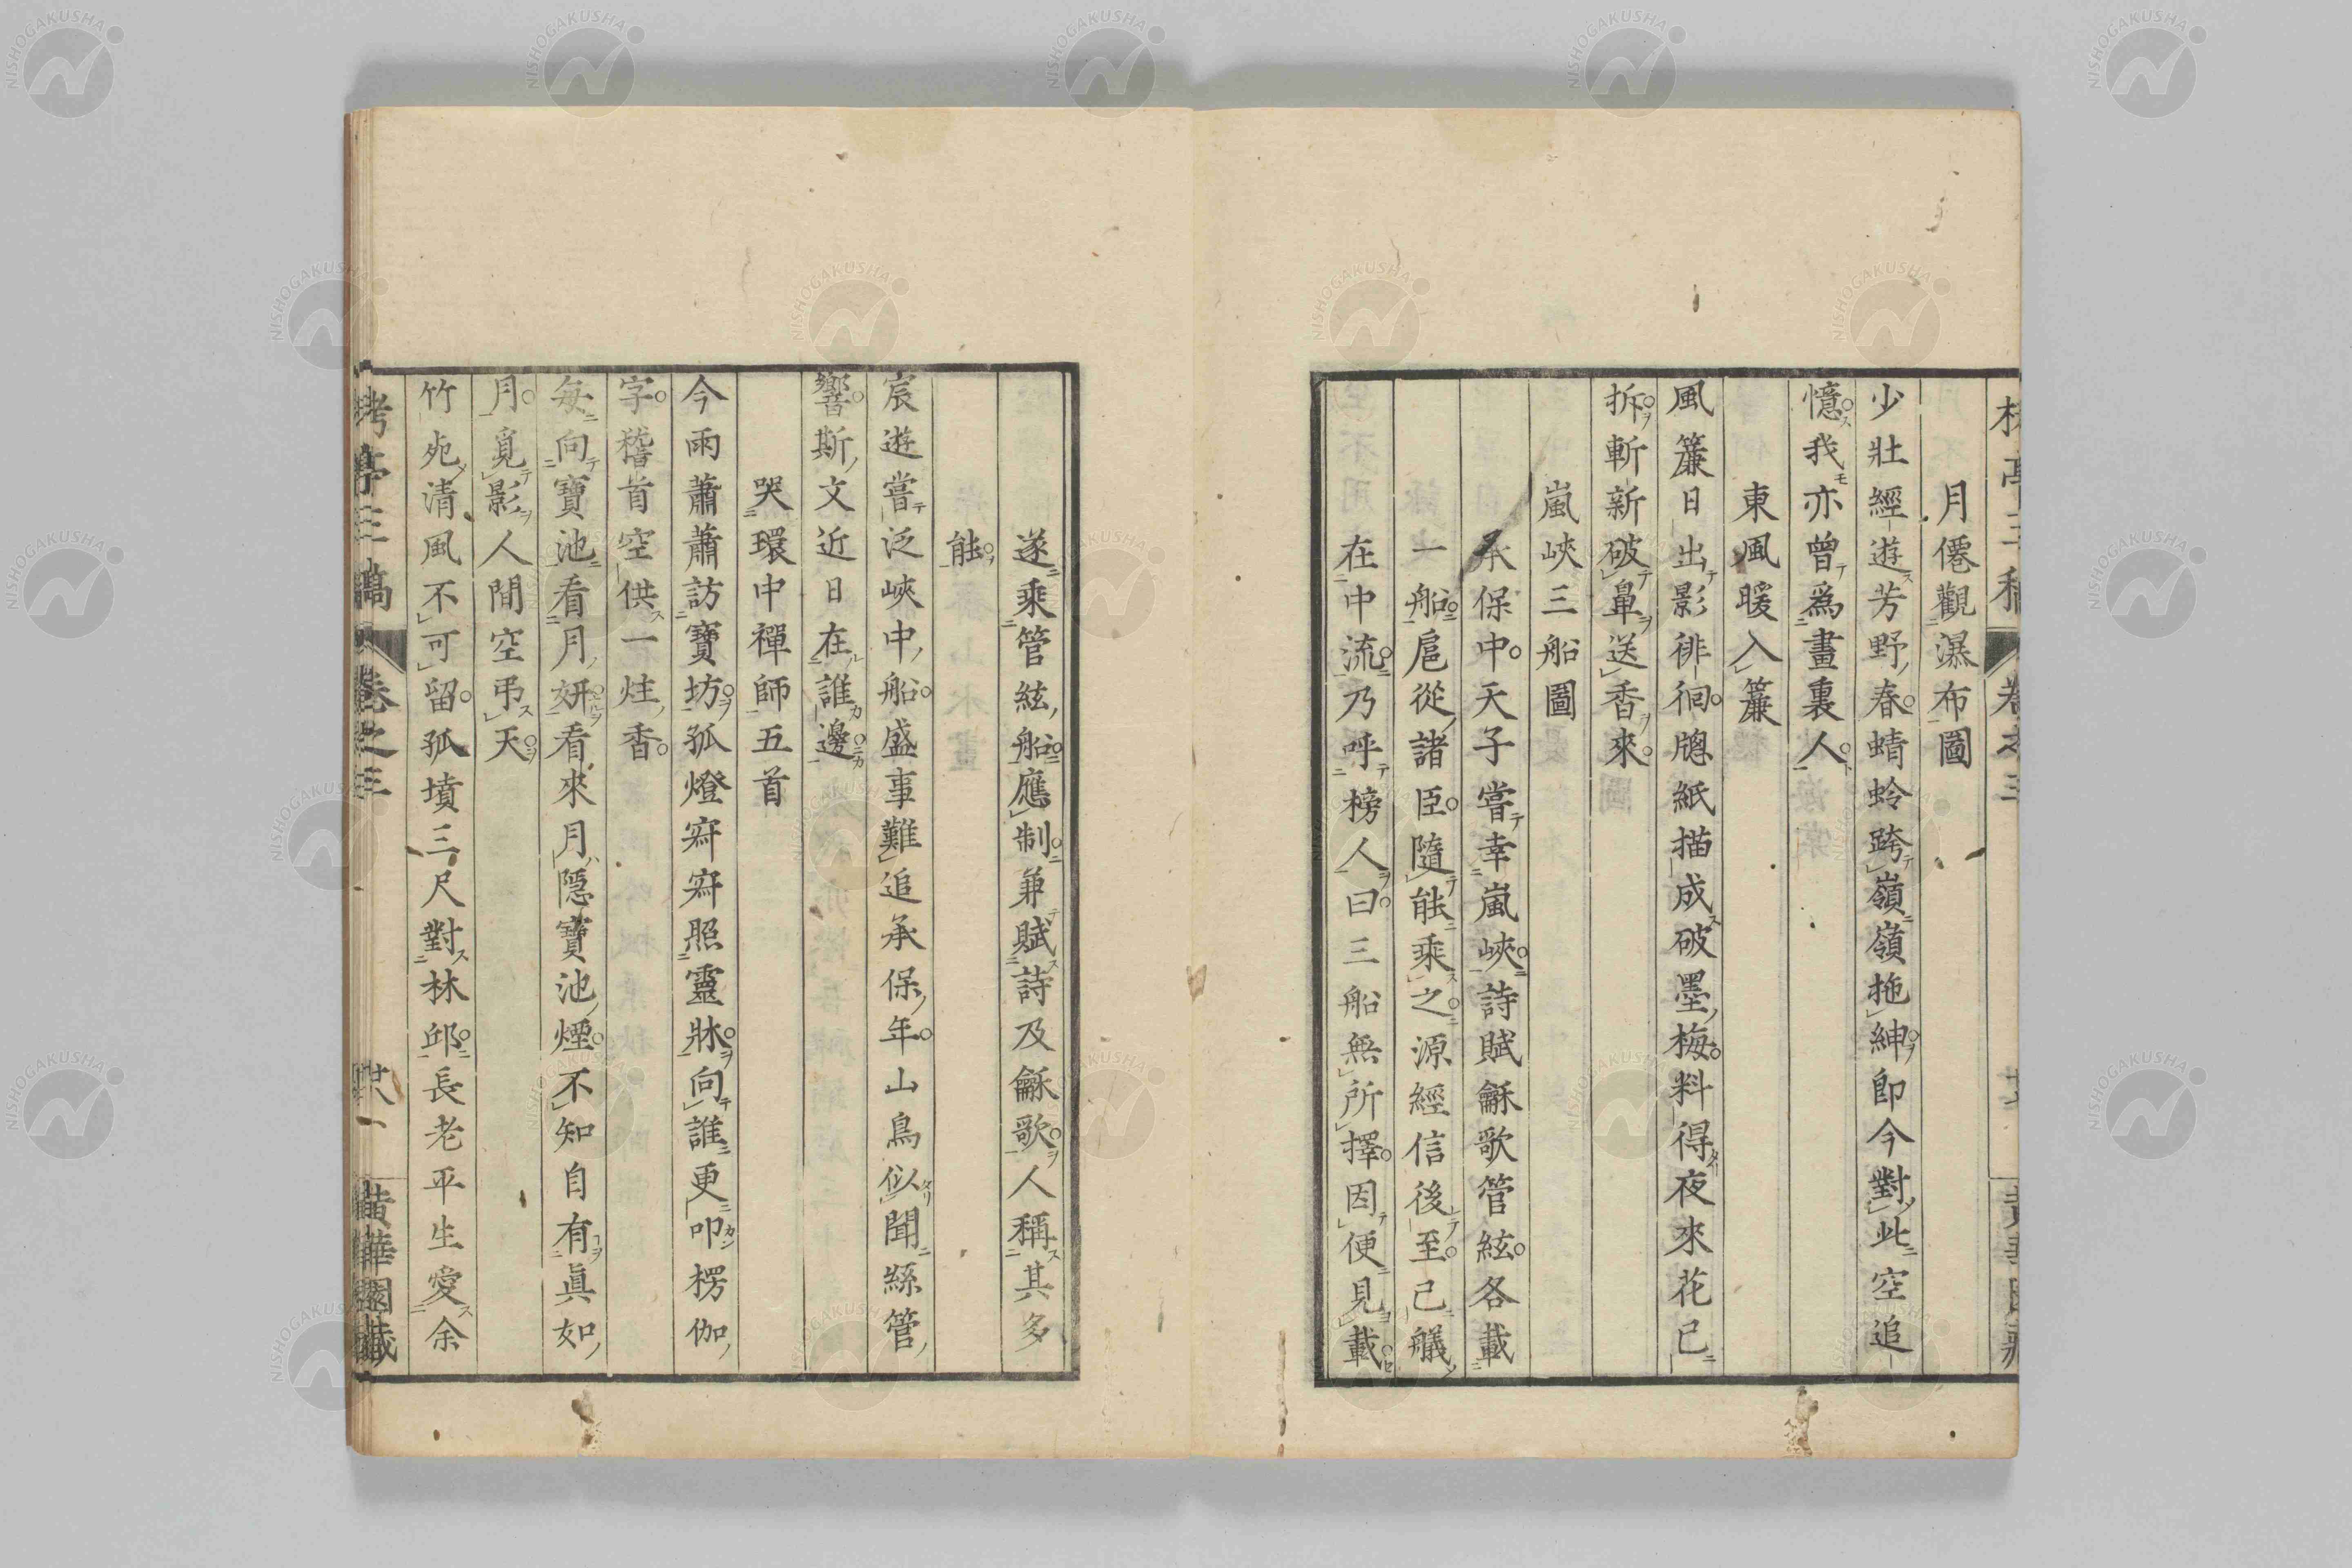 月僊觀瀑布圖
少壯經遊芳野春蜻蛉跨嶺嶺拖紳即今對此空追
憶我亦曾爲畫裏人
東風暖入簾
風簾日出影徘徊牕紙描成破墨梅料得夜來花已
拆斬新破鼻送香來
嵐峽三船圖
承保中天子嘗幸嵐峽詩賦龢歌管絃各載
一船扈從諸臣隨能乘之源經信後至已艤
在中流乃呼榜人曰三船無所擇因便見載
遂乘管絃船應制兼賦詩及龢歌人稱其多
能
宸遊嘗泛峽中船盛事難追承保年山鳥似聞絲管
響斯文近日在誰邊
哭環中禪師五首
今雨蕭蕭訪寶坊孤燈寂寂照靈牀向誰更叩楞伽
字稽首空供一炷香
每向寶池看月姸看來月隱寶池煙不知自有眞如
月覓影人間空弔天
竹苑清風不可留孤墳三尺對林邱長老平生愛余
栲亭三稿 卷之三 黃華園藏
NISHOGAKUSHA